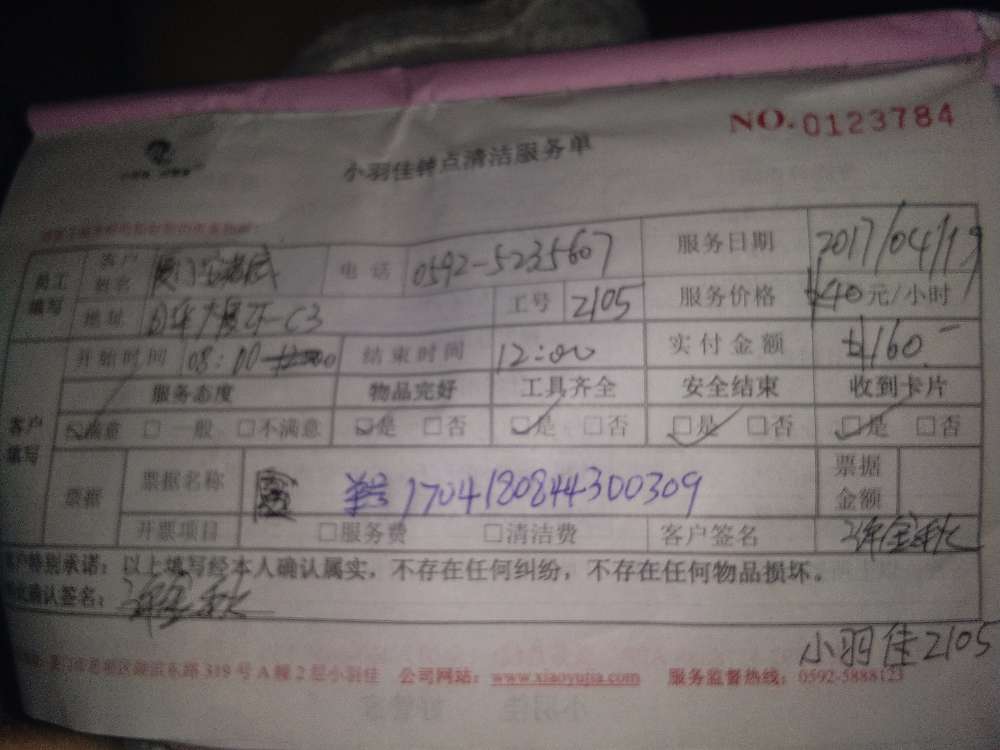 NO. 0123784
小羽佳钟点清洁服务单
员工填写 客户姓名 厦门 电话 0592-5235607 服务日期 2017/04/19
地址 工号 2105 服务价格 ¥40元/小时
开始时间 08:00 结束时间 12:00 实付金额 ¥160
服务态度 物品完好 工具齐全 安全结束 收到卡片
客户填写 满意 一般 不满意 是 否 是 否 是 否 是 否
票据 票据名称 1704180844300309 票据金额
开票项目 服务费 清洁费 客户签名
客户特别承诺：以上填写经本人确认属实，不存在任何纠纷，不存在任何物品损坏。
确认签名：
小羽佳2105
湖滨东路319号A幢2层小羽佳 公司网站：www.xiaoyujia.com 服务监督热线：0592-5888123